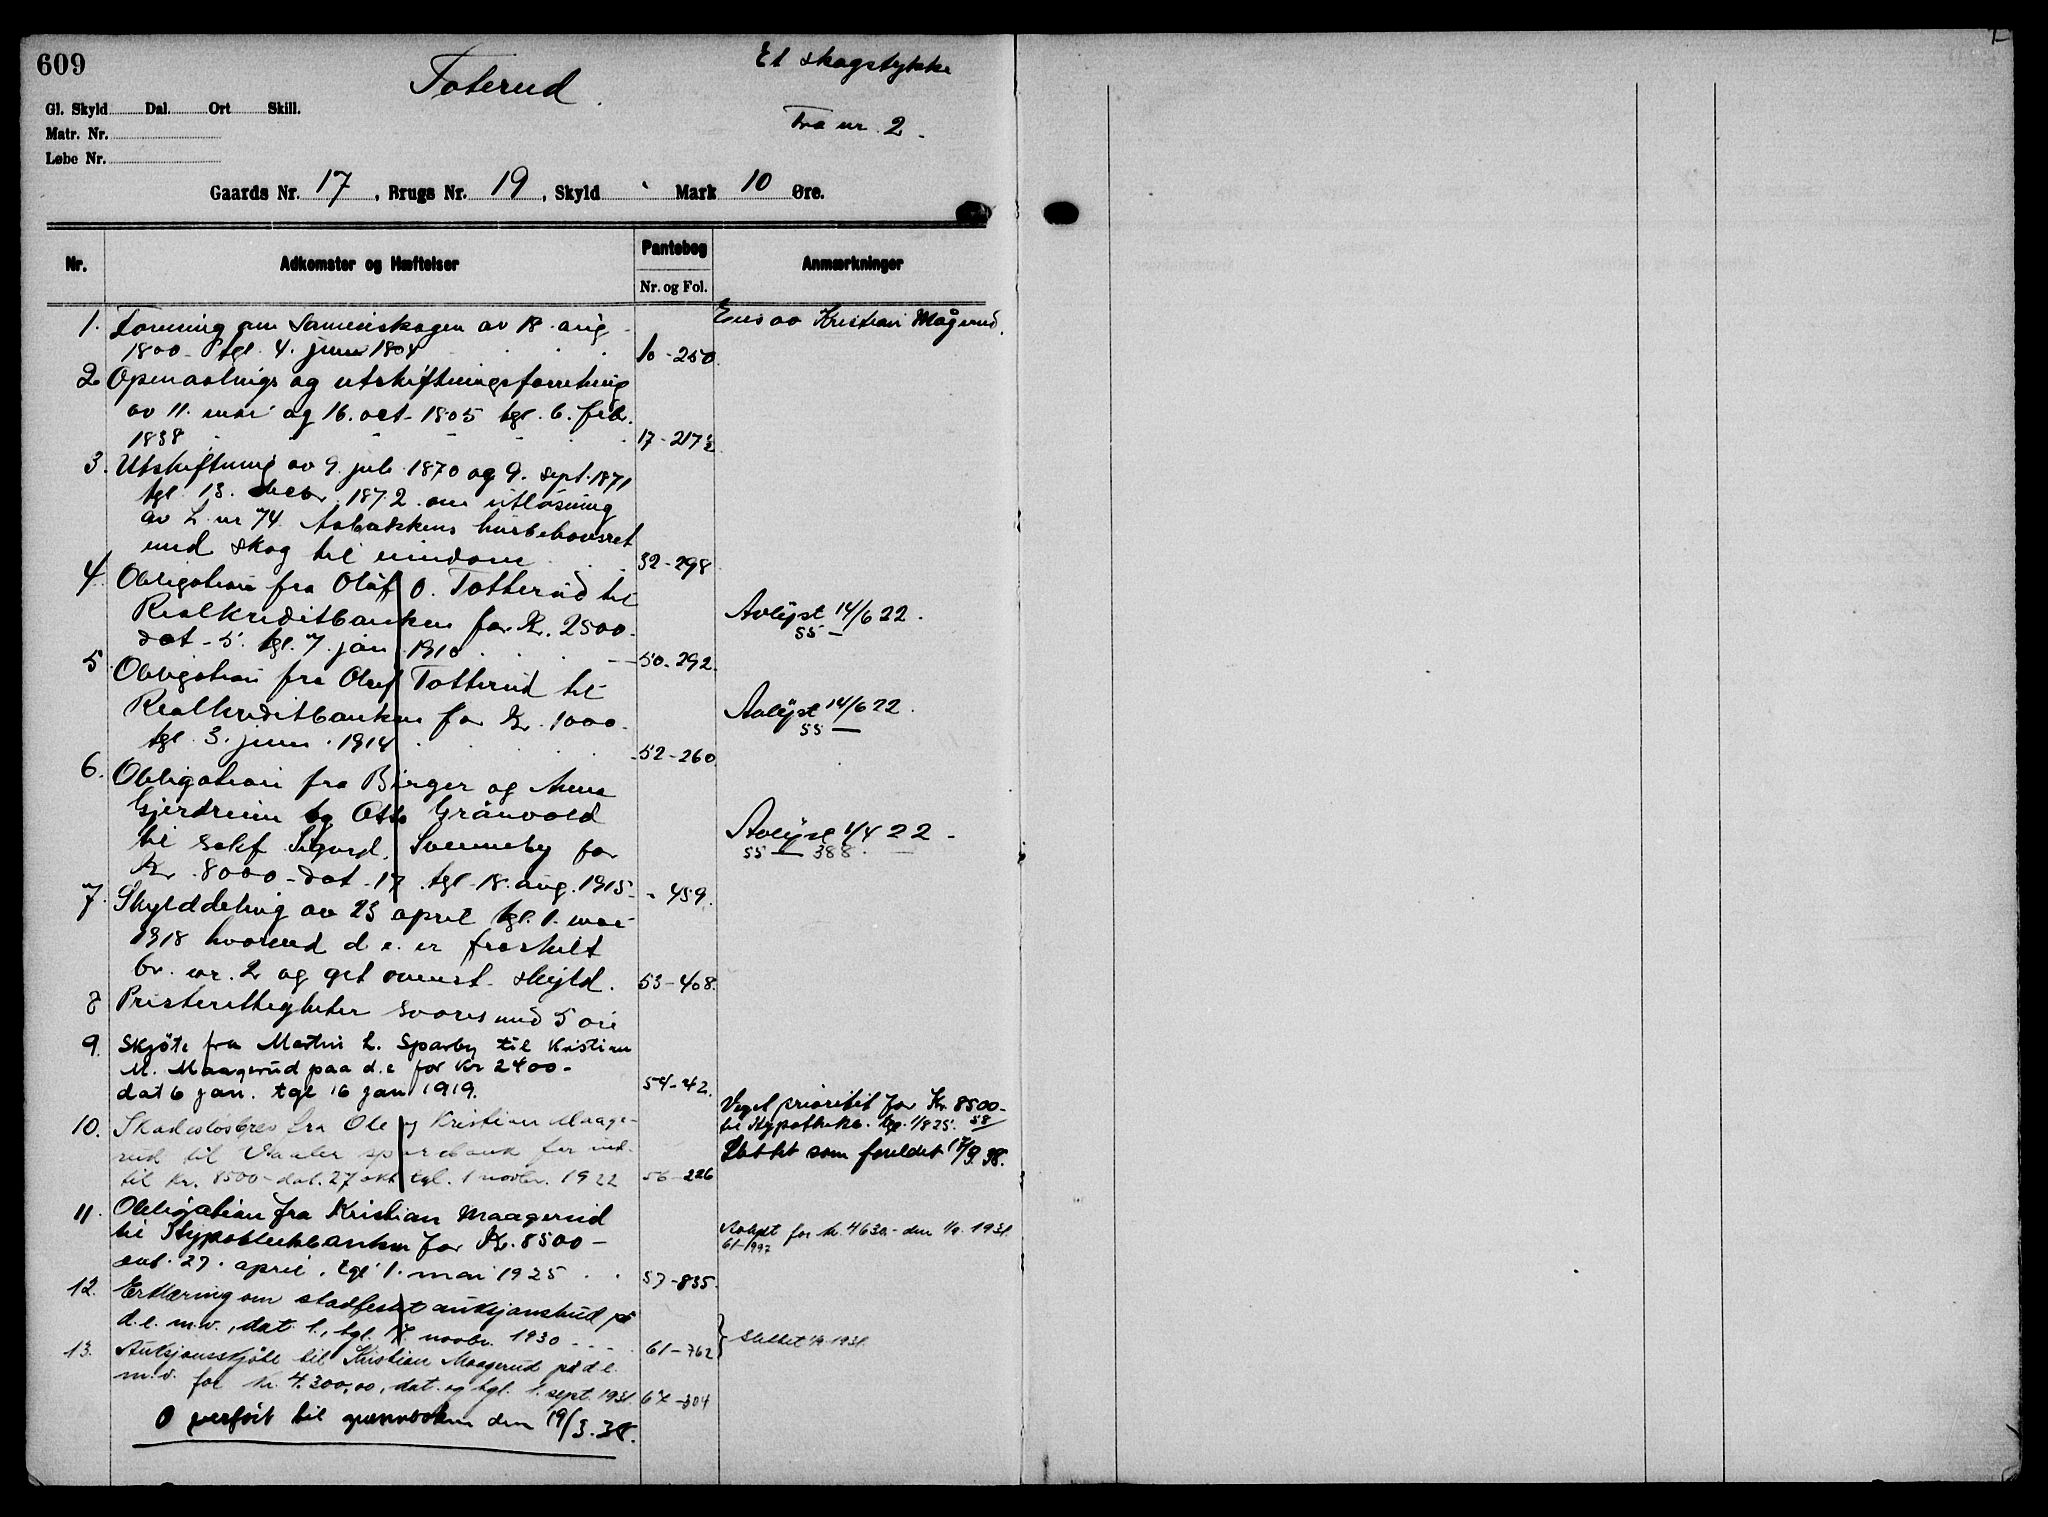 609
Toterud
Et skogstykke
Fra nr. 2
Gl. Skyld Dal. Ort Skill.
Matr. Nr.
Løbe Nr.
Gaards Nr. 17, Brugs Nr. 19, Skyld Mark 10 Øre.
Nr. Adkomster og Hæftelser Pantebog Anmærkninger
Nr. og Fol.
Eies av Kristian Mågerud.
1. om Sameieskogen av 18. aug
1800 tgl. 4. juni 1804 10-250
2. Opmaalings og utskiftningsforretning
av 11. mai og 16. oct. 1805 tgl. 6. febr.
1838 17-217½
3. Utskiftning av 9. juli 1870 og 9. sept. 1871
tgl. 13. decbr. 1872 om utløsning
av L. nr 74 Aabakkens husbehovsret
med skog til eiendom 32-298
4. Obligation fra Olaf O. Totterud til
Realkreditbanken for Kr. 2500-
dat. 5. tgl. 7. jan. 1910 50-292.
Avlyst 14/6 22.
55 —
5. Obligation fra Oluf Totterud til
Realkreditbanken for Kr. 1000-
tgl. 3. juni 1914 52-260
Avlyst 14/6 22.
55 —
6. Obligation fra Birger og Anna
Gjerdrum og Otto Grånvold
til sakf. Sigurd Svenneby for
Kr. 8000- dat. 17. tgl. 18. aug. 1915- - 459.
Avlyst 1/4 22 -
55 — 388.
7. Skylddeling av 23 april tgl. 1. mai
1918 hvorved d. e. er fraskilt
br. nr. 2 og git ovenst. skyld. 53-408.
8 Presterettigheter svares med 5 øre
9. Skjöte fra Martin L. Sparby til Kristian
M. Maagerud paa d.e for Kr 2400-
dat 6 jan. tgl 16 jan 1919. 54-42.
10. Skadesløsbrev fra Ole og Kristian Maage-
rud til Vaaler sparebank for ind-
til kr. 8500- dat. 27 okt tgl. 1 novbr. 1922 56-226
Veget prioritet for Kr. 8500-
til Hypothekb. tgl. 1/8 25. 58/
Slettet som foreldet 17/9. 38.
11. Obligation fra Kristian Maagerud
til Hypotekbanken for Kr. 8500-
dat. 27. april. tgl 1. mai 1925 57-835.
Avlyst for kr. 4630.- den 1/9. 1931.
61-1997
12. Erklæring om stadfestet auksjonsbud på
d.e. m.v., dat. 1., tgl. 17 novbr. 1930 61-762
Slettet 1/9 1931.
13. Auksjonsskjøte til Kristian Maagerud på d.e.
m.v. for kr. 4.300,00, dat. og tgl. 1. sept. 1931
Overført til grunnboken den 19/3.38.